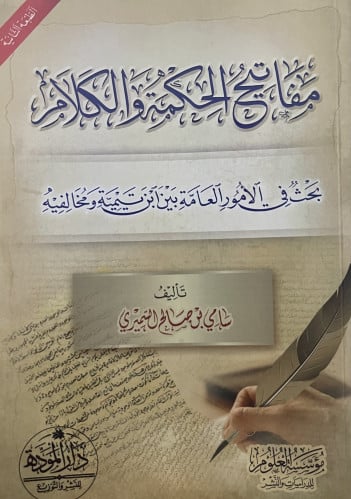 الطبعة الثانية
مفاتيح الحكمة والكلام
بحث في الأمور العامة بين ابن تيمية ومخالفيه
تأليف
سامي بن صالح السميري
دار المودة
للنشر والتوزيع
مؤسسة العلوم
للدراسات والنشر